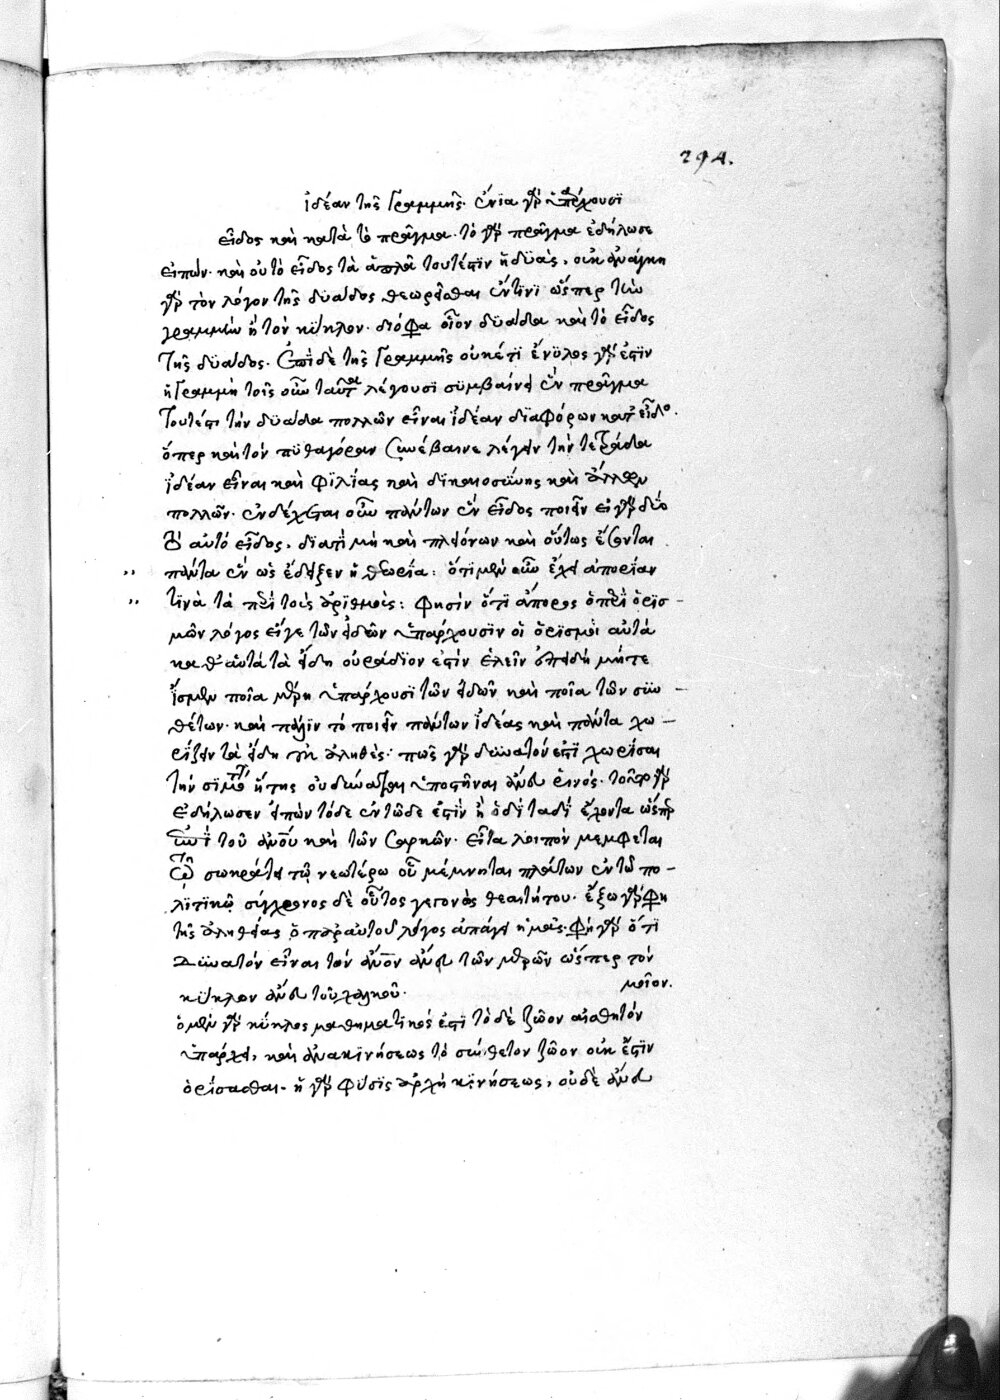 294.
ἰδέαν τῆς γραμμῆς. ἔνια γὰρ ὑπάρχουσι
εἶδος καὶ κατὰ τὸ πρᾶγμα. τὸ γὰρ πρᾶγμα ἐδήλωσε
εἰπών. καὶ οὐ τὸ εἶδος τὰ ἁπλᾶ τουτέστιν ἡ δυάς, οὐκ ἀνάγκη
γὰρ τὸν λόγον τῆς δυάδος θεωρεῖσθαι ἔν τινι ὥσπερ τὴν
γραμμὴν ἢ τὸν κύκλον. διό φα οἷον δυάδα καὶ τὸ εἶδος
τῆς δυάδος. ἐπὶ δὲ τῆς γραμμῆς οὐκέτι ἔνυλος γάρ ἐστιν
ἡ γραμμὴ τοῖς οὖν ταῦτα λέγουσι συμβαίνει ἓν πρᾶγμα
τουτέστι τὴν δυάδα πολλῶν εἶναι ἰδέαν διαφόρων κατ' εἶδος.
ὅπερ καὶ τὸν πυθαγόραν συνέβαινε λέγειν τὴν τετράδα
ἰδέαν εἶναι καὶ φιλίας καὶ δικαιοσύνης καὶ ἄλλων
πολλῶν. ἐνδέχεται οὖν πάντων ἓν εἶδος ποιεῖν εἰ γὰρ δύο
τὸ αὐτὸ εἶδος, διατί μὴ καὶ πλειόνων καὶ οὕτως ἔσονται
πάντα ἓν ὡς ἔδειξεν ἡ θεωρία: ὅτι μὲν οὖν ἔχει ἀπορίαν
τινὰ τὰ περὶ τοὺς ὁρισμούς: φησὶν ὅτι ἄπορος ὁ περὶ ὁρισ-
μῶν λόγος εἴγε τῶν εἰδῶν ὑπάρχουσιν οἱ ὁρισμοὶ αὐτὰ
καθ' αὑτὰ τὰ εἴδη οὐ ῥάδιον ἐστὶν ἑλεῖν ἐπειδὴ μήτε
ἴσμεν ποῖα μέρη ὑπάρχουσι τῶν εἰδῶν καὶ ποῖα τῶν συν-
θέτων. καὶ πάλιν τὸ ποιεῖν πάντων ἰδέας καὶ πάντα χω-
ρίζειν τὰ εἴδη οὐκ ἀληθές. πῶς γὰρ δυνατόν ἐστι χωρίσαι
τὴν σιμότητα ἥτις οὐ δύναται ὑποστῆναι ἄνευ ῥινός. τοῦτο γὰρ
ἐδήλωσεν εἰπὼν τόδε ἐν τῷδε ἐστὶν ἢ ὡδὶ ταδὶ ἔχοντα ὥσπερ
ἐπὶ τοῦ ἀνθρώπου καὶ τῶν σαρκῶν. εἶτα λοιπὸν μέμφεται
τῷ σωκράτει τῷ νεωτέρῳ οὗ μέμνηται πλάτων ἐν τῷ πο-
λιτικῷ σύγχρονος δὲ οὗτος γεγονὼς θεαιτήτου. ἔξω γάρ φη
τῆς ἀληθείας ὁ παρ' αὐτοῦ λόγος ἀπάγει ἡμᾶς. φη γὰρ ὅτι
δυνατὸν εἶναι τὸν ἄνθρωπον ἄνευ τῶν μερῶν ὥσπερ τὸν
κύκλον ἄνευ τοῦ χαλκοῦ. μοῖον.
ὁ μὲν γὰρ κύκλος μαθηματικός ἐστι τὸ δὲ ζῶον αἰσθητὸν
ὑπάρχει, καὶ ἄνευ κινήσεως τὸ σύνθετον ζῶον οὐκ ἔστιν
ὁρίσασθαι. ἡ γὰρ φύσις ἀρχὴ κινήσεως, οὐδὲ ἄνευ